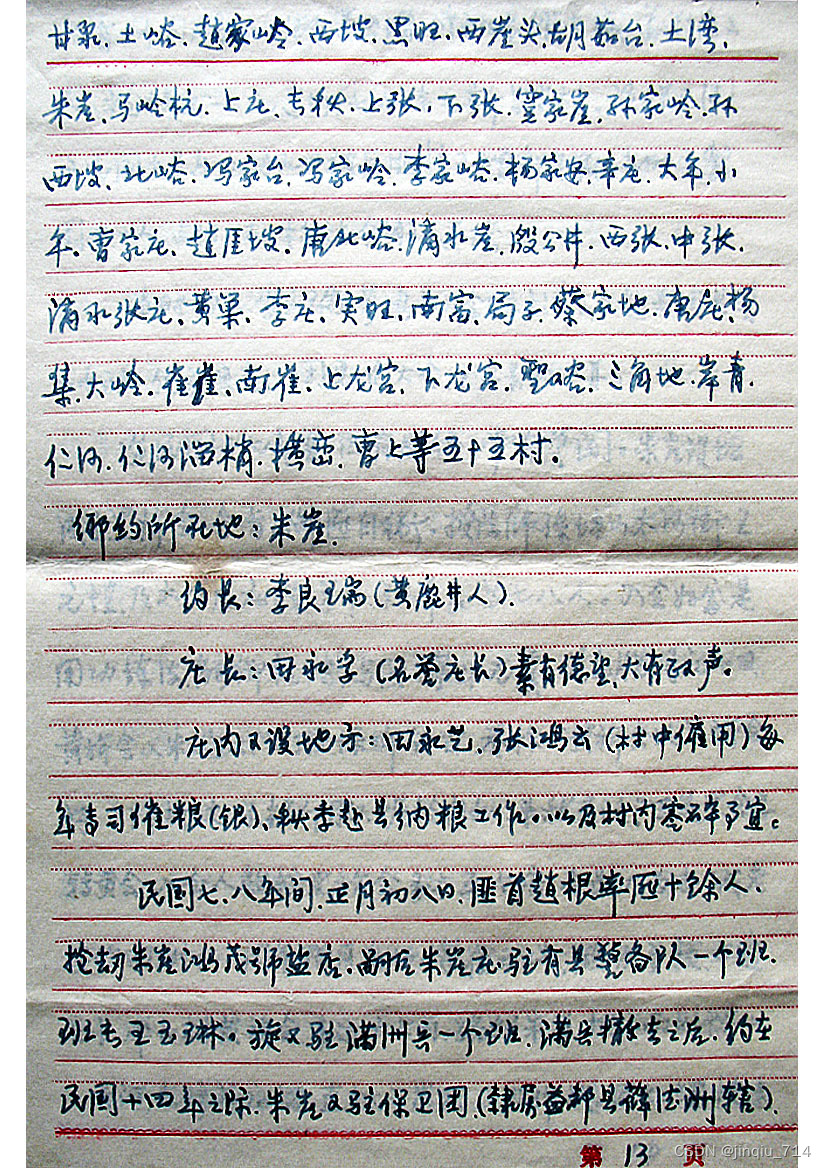 甘泉、土峪、赵家岭、西坡、黑旺、西崖头、胡茄台、土湾、
朱崖、马岭杭、上庄、吉秋、上张、下张、窦家崖、孙家岭、孙
西坡、北峪、冯家台、冯家岭、李家峪、杨家安、辛庄、大牟、小
牟、曹家庄、赵匡坡、唐北峪、滴水崖、殷公井、西张、中张、
滴水张庄、黄巢、李庄、寅旺、南富、局子、蔡家地、唐庄、杨
集、大岭、崔崔、南崔、上龙宫、下龙宫、圣峪、三角地、岸青、
仁河、仁河溜梢、横峦、曹上等五十五村。
乡约所在地：朱崖。
约长：李良瑞（黄鹿井人）.
庄长：田永孚（名誉庄长）素有德望、大有政声。
庄内又设地方：田永艺、张鸿云（村中雇用）每
年专司催粮（银）、秋季赴县纳粮工作。以及村内零碎事宜。
民国七、八年间、正月初八日、匪首趙根率匪十餘人、
抢劫朱崖鸿茂號盐店、嗣后朱崖庄驻有县警备队一个班、
班长王玉琳。旋又驻满洲兵一个班、满兵撤去之后、约在
民国十四年之际、朱崖又驻保卫团（隸属益都县薛法洲辖）.
第 13 页
CSDN @jinqiu_714